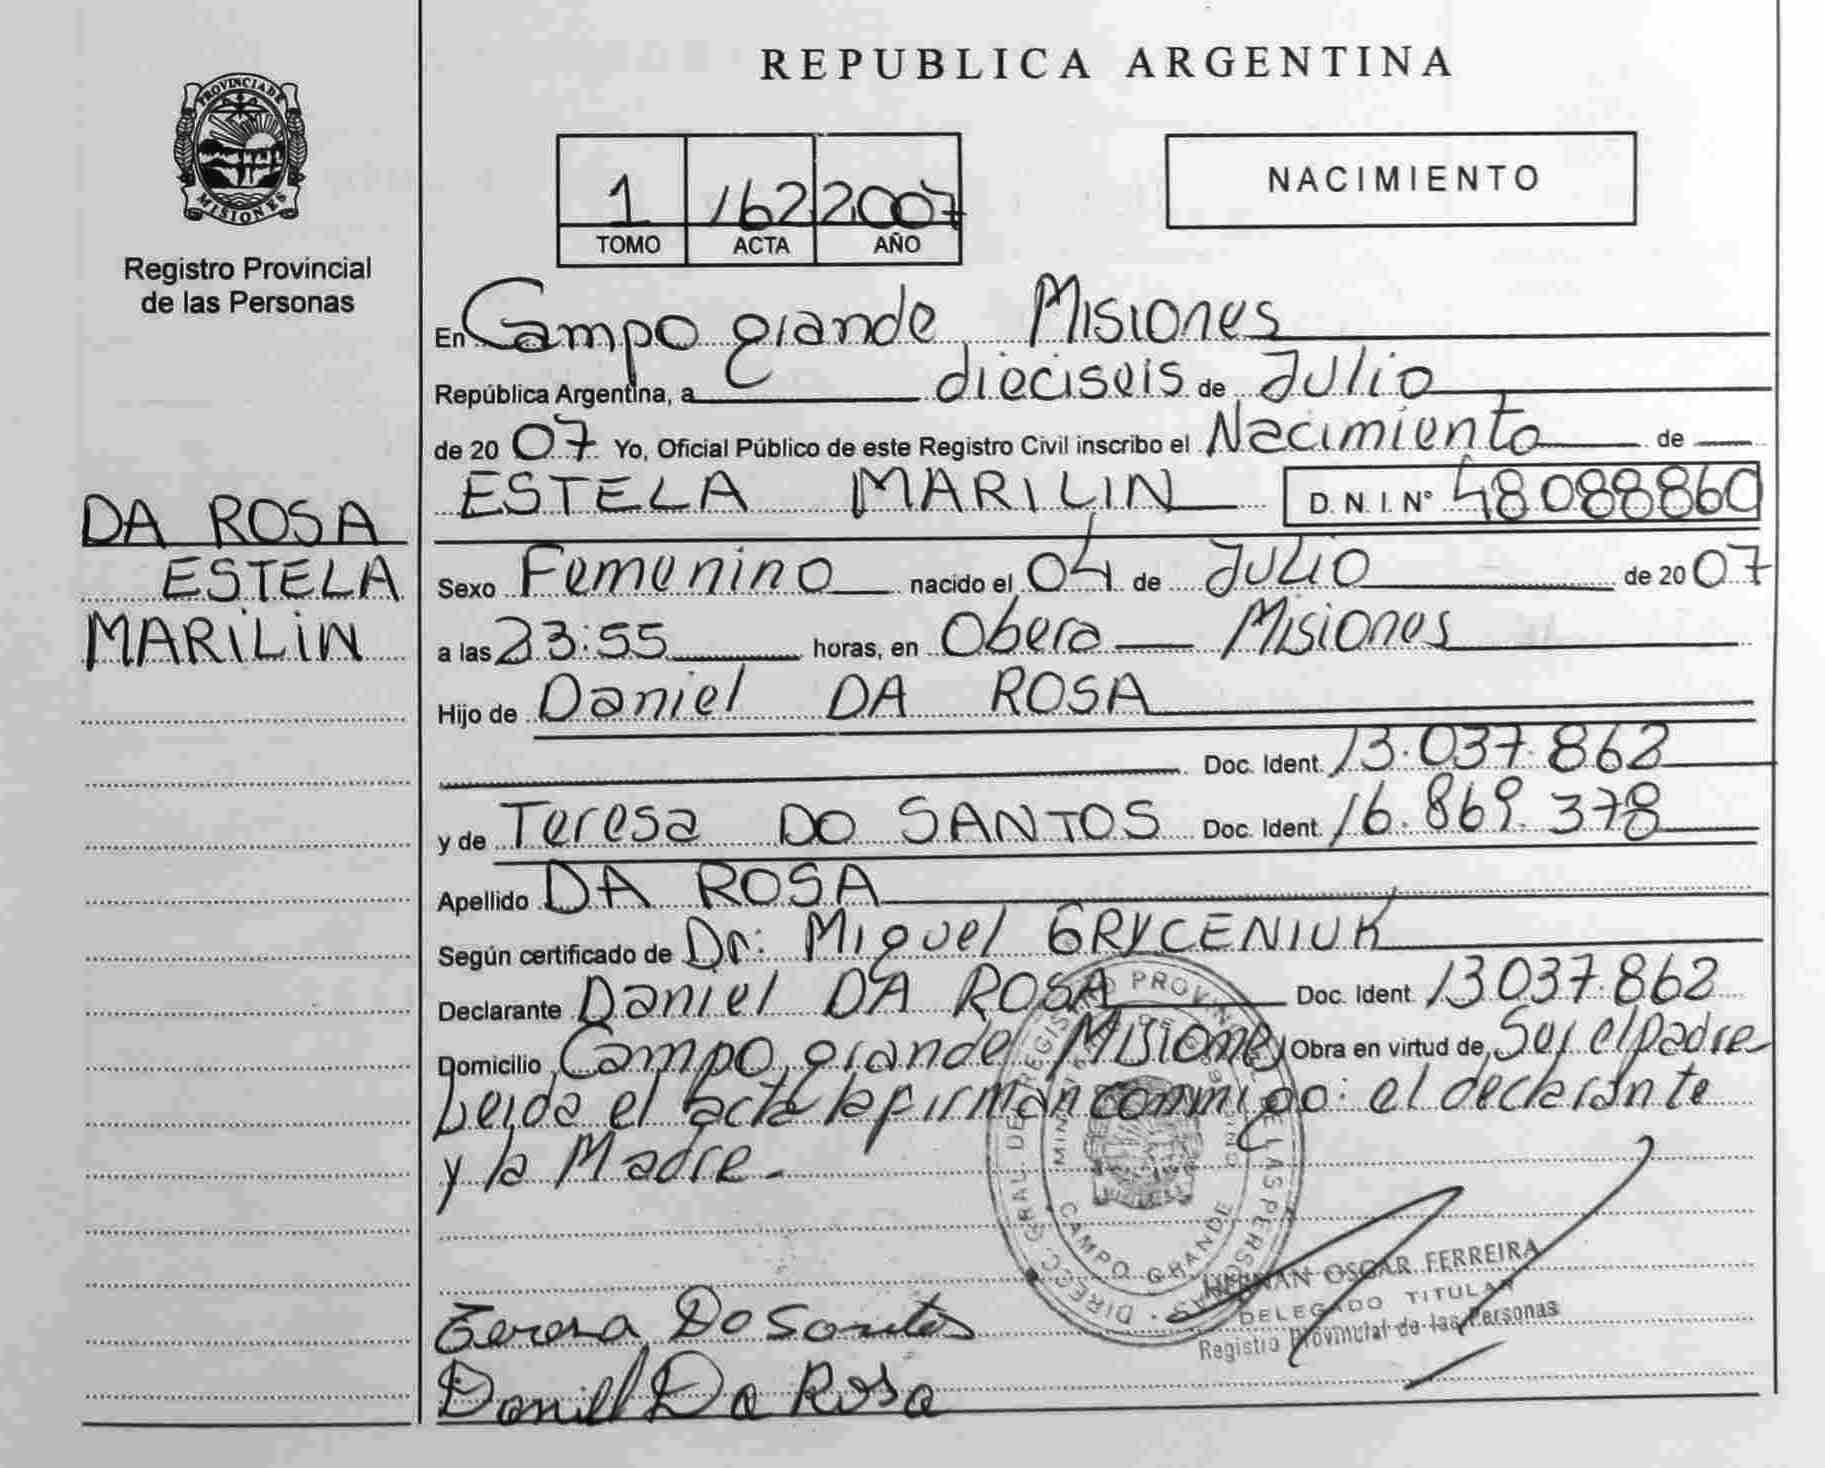 REPUBLICA ARGENTINA
PROVINCIA DE
MISIONES
Registro Provincial
de las Personas
1 162 2007
TOMO ACTA AÑO
NACIMIENTO
DA ROSA
ESTELA
MARILIN
En Campo grande Misiones
República Argentina, a dieciseis de Julio
de 2007 Yo, Oficial Público de este Registro Civil inscribo el Nacimiento de
ESTELA MARILIN D.N.I.N° 48088860
Sexo Femenino nacido el 04 de Julio de 2007
a las 23:55 horas, en Obera Misiones
Hijo de Daniel DA ROSA
Doc. Ident. 13.037.862
y de Teresa DO SANTOS Doc. Ident. 16.869.378
Apellido DA ROSA
Según certificado de Dr: Miguel GRYCENIUK
Declarante Daniel DA ROSA Doc. Ident. 13037.862
Domicilio Campo grande Misiones Obra en virtud de Ser el padre
Leida el acta la firman conmigo: el declarante
y la Madre.
DIRECC. GRAL. DE REGISTRO PROVINCIAL DE LAS PERSONAS
CAMPO GRANDE
HERNAN OSCAR FERREIRA
DELEGADO TITULAR
Registro Provincial de las Personas
Teresa Do Santos
Daniel Da Rosa